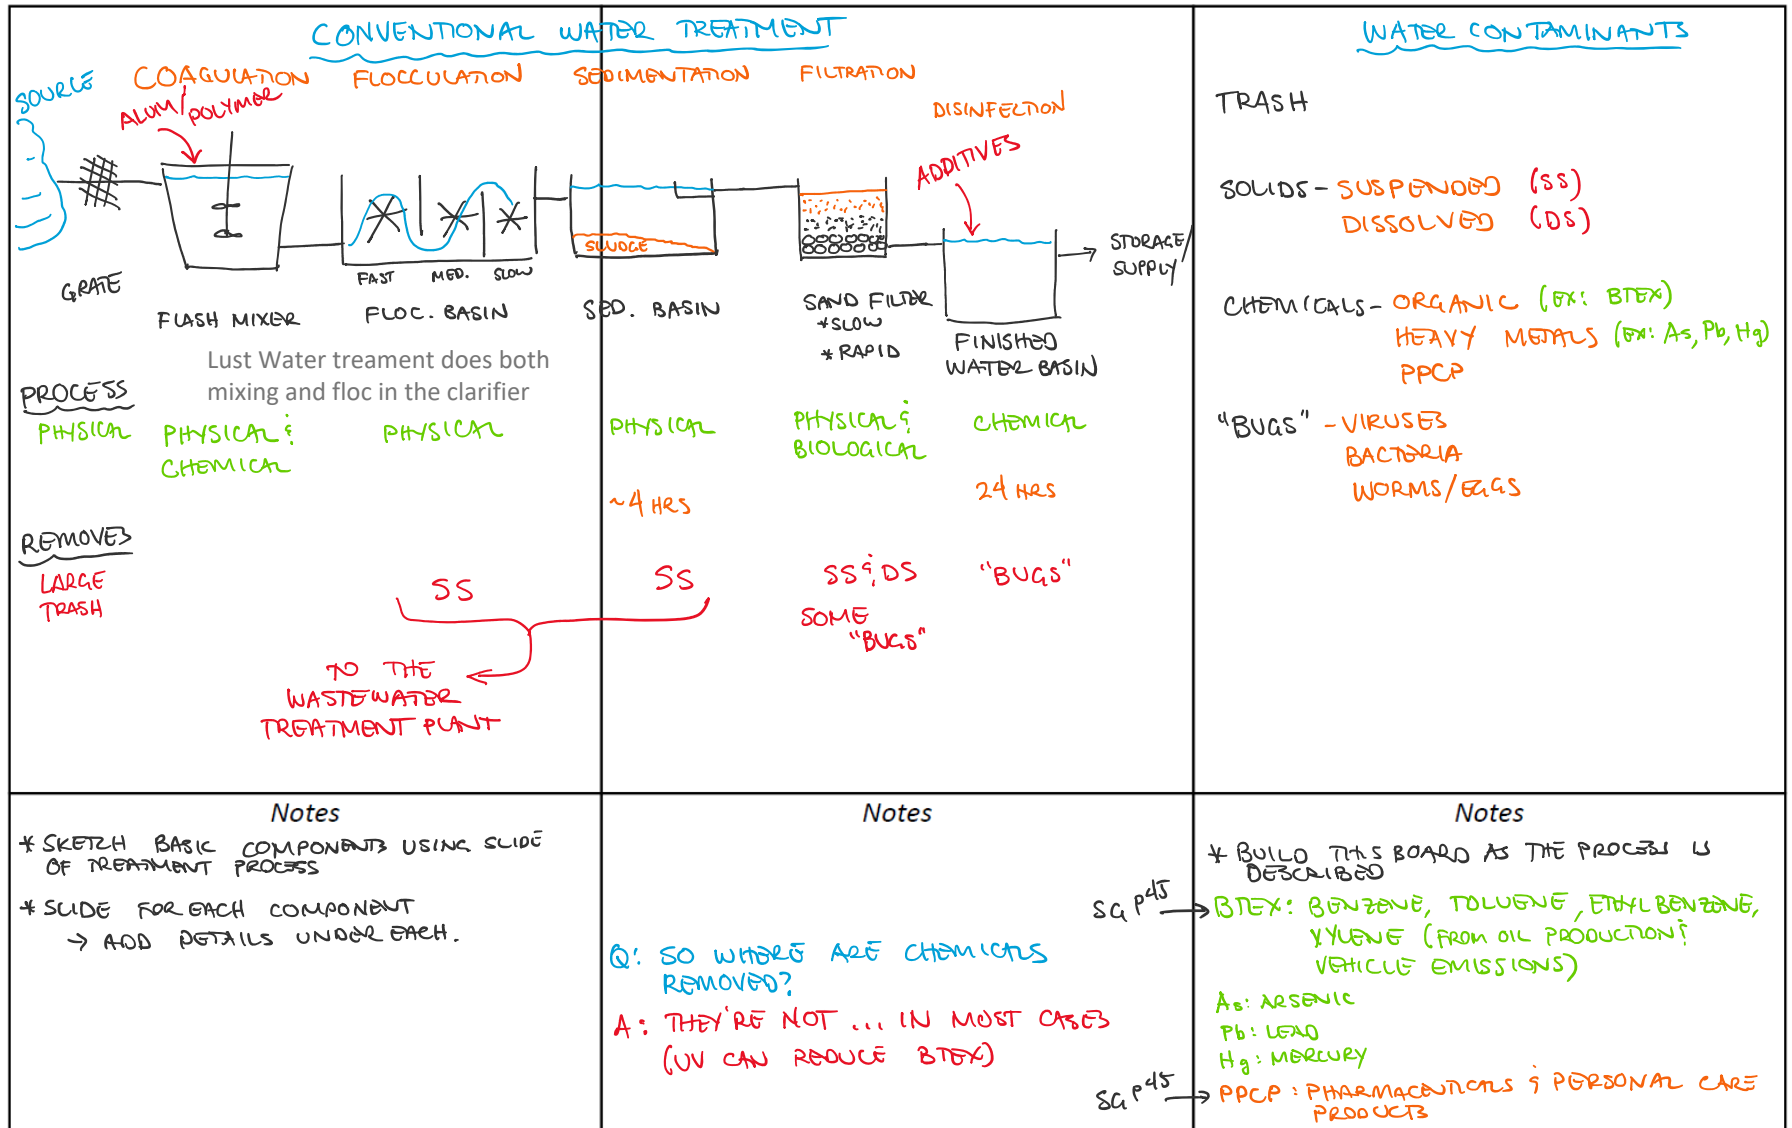 CONVENTIONAL WATER TREATMENT
SOURCE
COAGULATION
FLOCCULATION
SEDIMENTATION
FILTRATION
DISINFECTION
ALUM/POLYMER
ADDITIVES
SLUDGE
FAST
MED.
SLOW
STORAGE/
SUPPLY
GRATE
FLASH MIXER
FLOC. BASIN
SED. BASIN
SAND FILTER
*SLOW
*RAPID
FINISHED
WATER BASIN
Lust Water treament does both
mixing and floc in the clarifier
PROCESS
PHYSICAL
PHYSICAL &
CHEMICAL
PHYSICAL
PHYSICAL
PHYSICAL &
BIOLOGICAL
CHEMICAL
~4 HRS
24 HRS
REMOVES
LARGE
TRASH
SS
SS
SS & DS
SOME
"BUGS"
"BUGS"
TO THE
WASTEWATER
TREATMENT PLANT
WATER CONTAMINANTS
TRASH
SOLIDS - SUSPENDED (SS)
DISSOLVED (DS)
CHEMICALS - ORGANIC (EX: BTEX)
HEAVY METALS (EX: As, Pb, Hg)
PPCP
"BUGS" - VIRUSES
BACTERIA
WORMS/EGGS
Notes
* SKETCH BASIC COMPONENTS USING SLIDE
OF TREATMENT PROCESS
* SLIDE FOR EACH COMPONENT
→ ADD DETAILS UNDER EACH.
Notes
Q: SO WHERE ARE CHEMICALS
REMOVED?
A: THEY'RE NOT ... IN MOST CASES
(UV CAN REDUCE BTEX)
Notes
* BUILD THIS BOARD AS THE PROCESS IS
DESCRIBED
SG P45 → BTEX: BENZENE, TOLUENE, ETHYLBENZENE,
XYLENE (FROM OIL PRODUCTION &
VEHICLE EMISSIONS)
As: ARSENIC
Pb: LEAD
Hg: MERCURY
SG P45 → PPCP: PHARMACEUTICALS & PERSONAL CARE
PRODUCTS